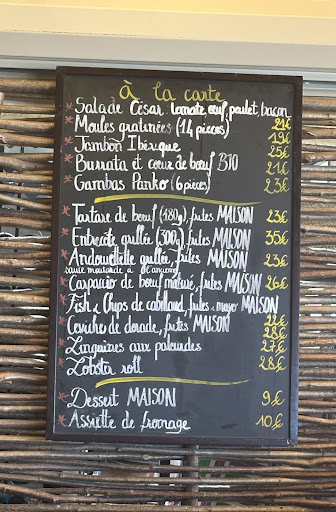 à la carte
Salade César tomate, œuf, poulet, bacon
21€
Moules gratinées (14 pièces) 19€
Jambon Ibérique 25€
Burrata et cœur de bœuf BIO 21€
Gambas Panko (6 pièces) 23€
Tartare de bœuf (180g), frites MAISON 23€
Entrecôte grillée (300g), frites MAISON 35€
Andouillette grillée, frites MAISON 23€
sauce moutarde à l'ancienne
Carpaccio de bœuf maturé, frites MAISON 26€
Fish & Chips de cabillaud, frites & mayo MAISON
22€
Ceviche de dorade, frites MAISON 28€
Linguines aux palourdes 27€
Lobster roll 28€
Dessert MAISON 9€
Assiette de fromage 10€